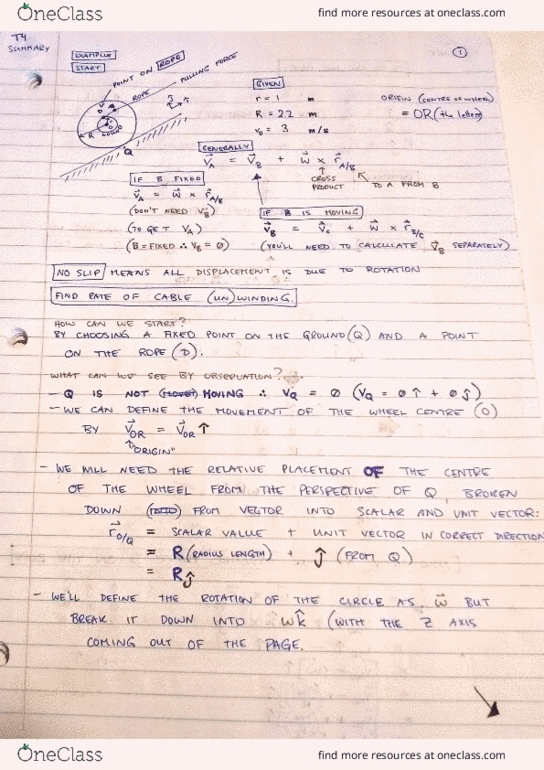 OneClass
find more resources at oneclass.com
T4
SUMMARY
EXAMPLE
START
1
POINT ON ROPE
ROPE
PULLING FORCE
R
Q
GIVEN
r = 1 m
R = 2.2 m
v₀ = 3 m/s
ORIGIN (CENTRE OF WHEEL)
= OR (the letters)
GENERALLY
V⃗A = V⃗B + ω⃗ × r⃗A/B
CROSS PRODUCT
TO A FROM B
IF B FIXED
V⃗A = ω⃗ × r⃗A/B
(DON'T NEED V⃗B)
(TO GET VA)
(B = FIXED ∴ VB = 0)
IF B IS MOVING
V⃗B = V⃗c + ω⃗ × r⃗B/C
(YOU'LL NEED TO CALCULATE V⃗B SEPARATELY)
NO SLIP MEANS ALL DISPLACEMENT IS DUE TO ROTATION
FIND RATE OF CABLE (UN)WINDING.
HOW CAN WE START?
BY CHOOSING A FIXED POINT ON THE GROUND (Q) AND A POINT
ON THE ROPE (D).
WHAT CAN WE SEE BY OBSERVATION?
- Q IS NOT MOVING ∴ VQ = 0 (VQ = 0 î + 0 ĵ)
- WE CAN DEFINE THE MOVEMENT OF THE WHEEL CENTRE (O)
BY V⃗OR = V⃗OR î
"ORIGIN"
- WE WILL NEED THE RELATIVE PLACEMENT OF THE CENTRE
OF THE WHEEL FROM THE PERSPECTIVE OF Q, BROKEN
DOWN FROM VECTOR INTO SCALAR AND UNIT VECTOR:
r⃗O/Q = SCALAR VALUE + UNIT VECTOR IN CORRECT DIRECTION
= R (RADIUS LENGTH) + ĵ (FROM Q)
= Rĵ
- WE'LL DEFINE THE ROTATION OF THE CIRCLE AS ω⃗ BUT
BREAK IT DOWN INTO ωk̂ (WITH THE Z AXIS
COMING OUT OF THE PAGE.
OneClass
find more resources at oneclass.com